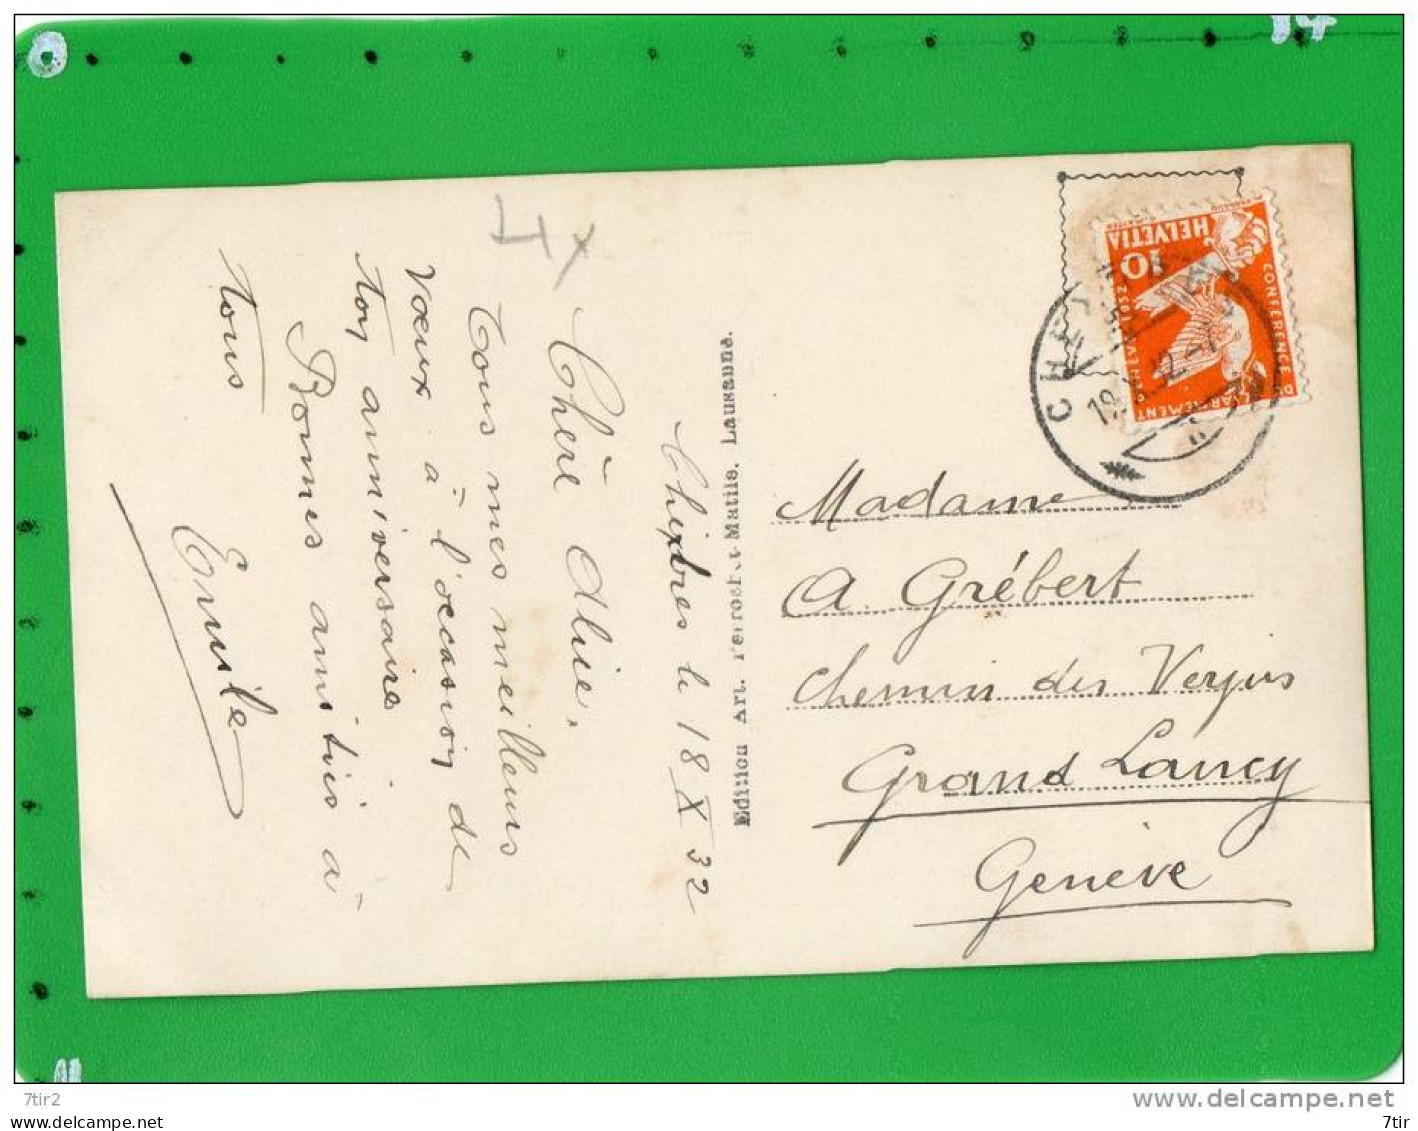 Chexbres le 18 X 32
Chère Alice,
Tous mes meilleurs
vœux à l'occasion de
ton anniversaire
Bonnes amitiés à
tous
Emile
Edition Art. Perrochet-Matile, Lausanne.
HELVETIA
10
CONFERENCE DU
DESARMEMENT
GENEVE 1932
Madame
A. Grébert
Chemin des Verjus
Grand Lancy
Genève
14
7tir2
www.delcampe.net
7tir2
7tir